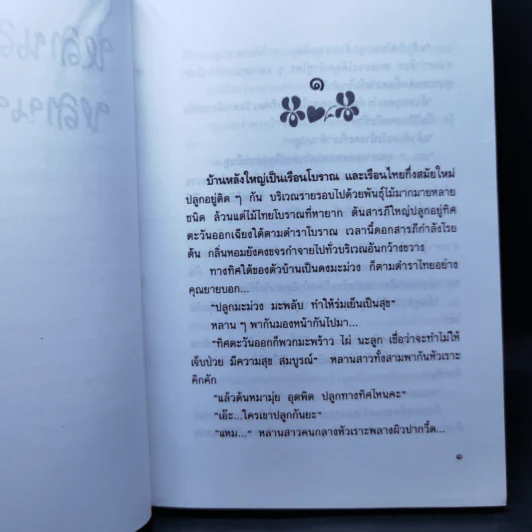 ๑
บ้านหลังใหญ่เป็นเรือนโบราณ และเรือนไทยกึ่งสมัยใหม่
ปลูกอยู่ติด ๆ กัน บริเวณรายรอบไปด้วยพันธุ์ไม้มากมายหลาย
ชนิด ล้วนแต่ไม้ไทยโบราณที่หายาก ต้นสารภีใหญ่ปลูกอยู่ทิศ
ตะวันออกเฉียงใต้ตามตำราโบราณ เวลานี้ดอกสารภีกำลังโรย
ต้น กลิ่นหอมยังคงขจรกำจายไปทั่วบริเวณอันกว้างขวาง
ทางทิศใต้ของตัวบ้านเป็นดงมะม่วง ก็ตามตำราไทยอย่าง
คุณยายบอก...
"ปลูกมะม่วง มะพลับ ทำให้ร่มเย็นเป็นสุข"
หลาน ๆ พากันมองหน้ากันไปมา...
"ทิศตะวันออกก็พวกมะพร้าว ไผ่ นะลูก เชื่อว่าจะทำไม่ให้
เจ็บป่วย มีความสุข สมบูรณ์" หลานสาวทั้งสามพากันหัวเราะ
คิกคัก
"แล้วต้นหมามุ่ย อุตพิต ปลูกทางทิศไหนคะ"
"เอ๊ะ...ใครเขาปลูกกันยะ"
"แหม..." หลานสาวคนกลางหัวเราะพลางผิวปากวี้ด...
๑